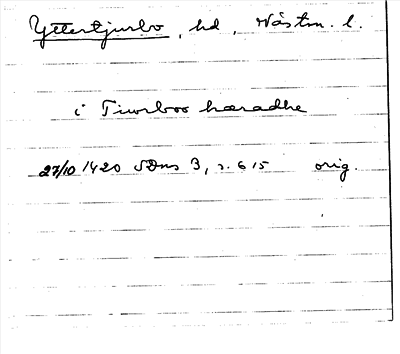 Yttertjurbo, hd, Västm. l.
i Tiwrboo hæradhe
27/10 1420 SDns 3, s. 615 orig.